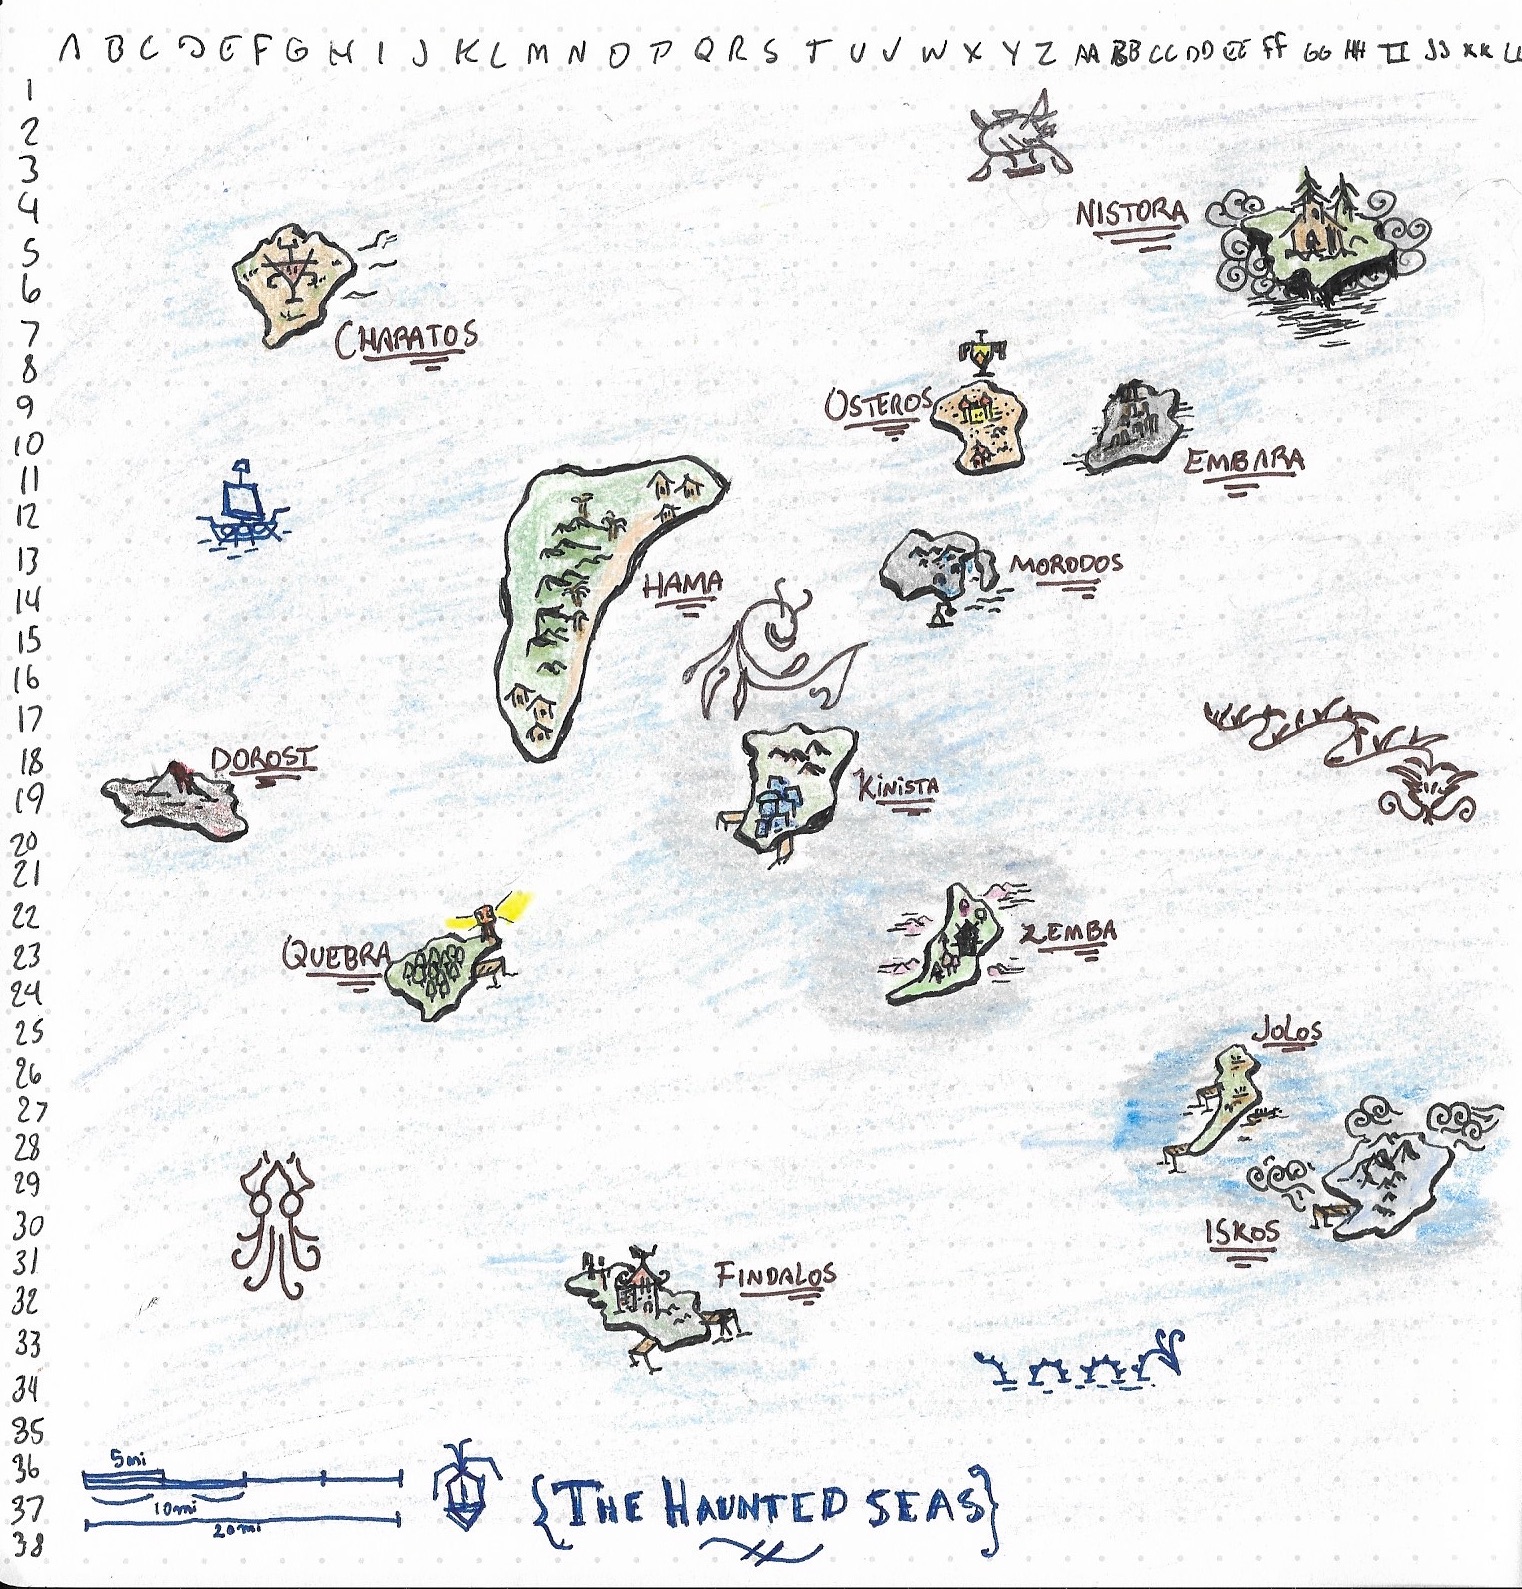 A B C D E F G H I J K L M N O P Q R S T U V W X Y Z AA BB CC DD EE FF GG HH II JJ KK LL
1
2
3
4
5
6
7
8
9
10
11
12
13
14
15
16
17
18
19
20
21
22
23
24
25
26
27
28
29
30
31
32
33
34
35
36
37
38
NISTORA
CHARATOS
OSTEROS
EMBARA
MORODOS
HAMA
DOROST
KINISTA
QUEBRA
ZEMBA
JOLOS
ISKOS
FINDALOS
5mi
10mi
20mi
{THE HAUNTED SEAS}